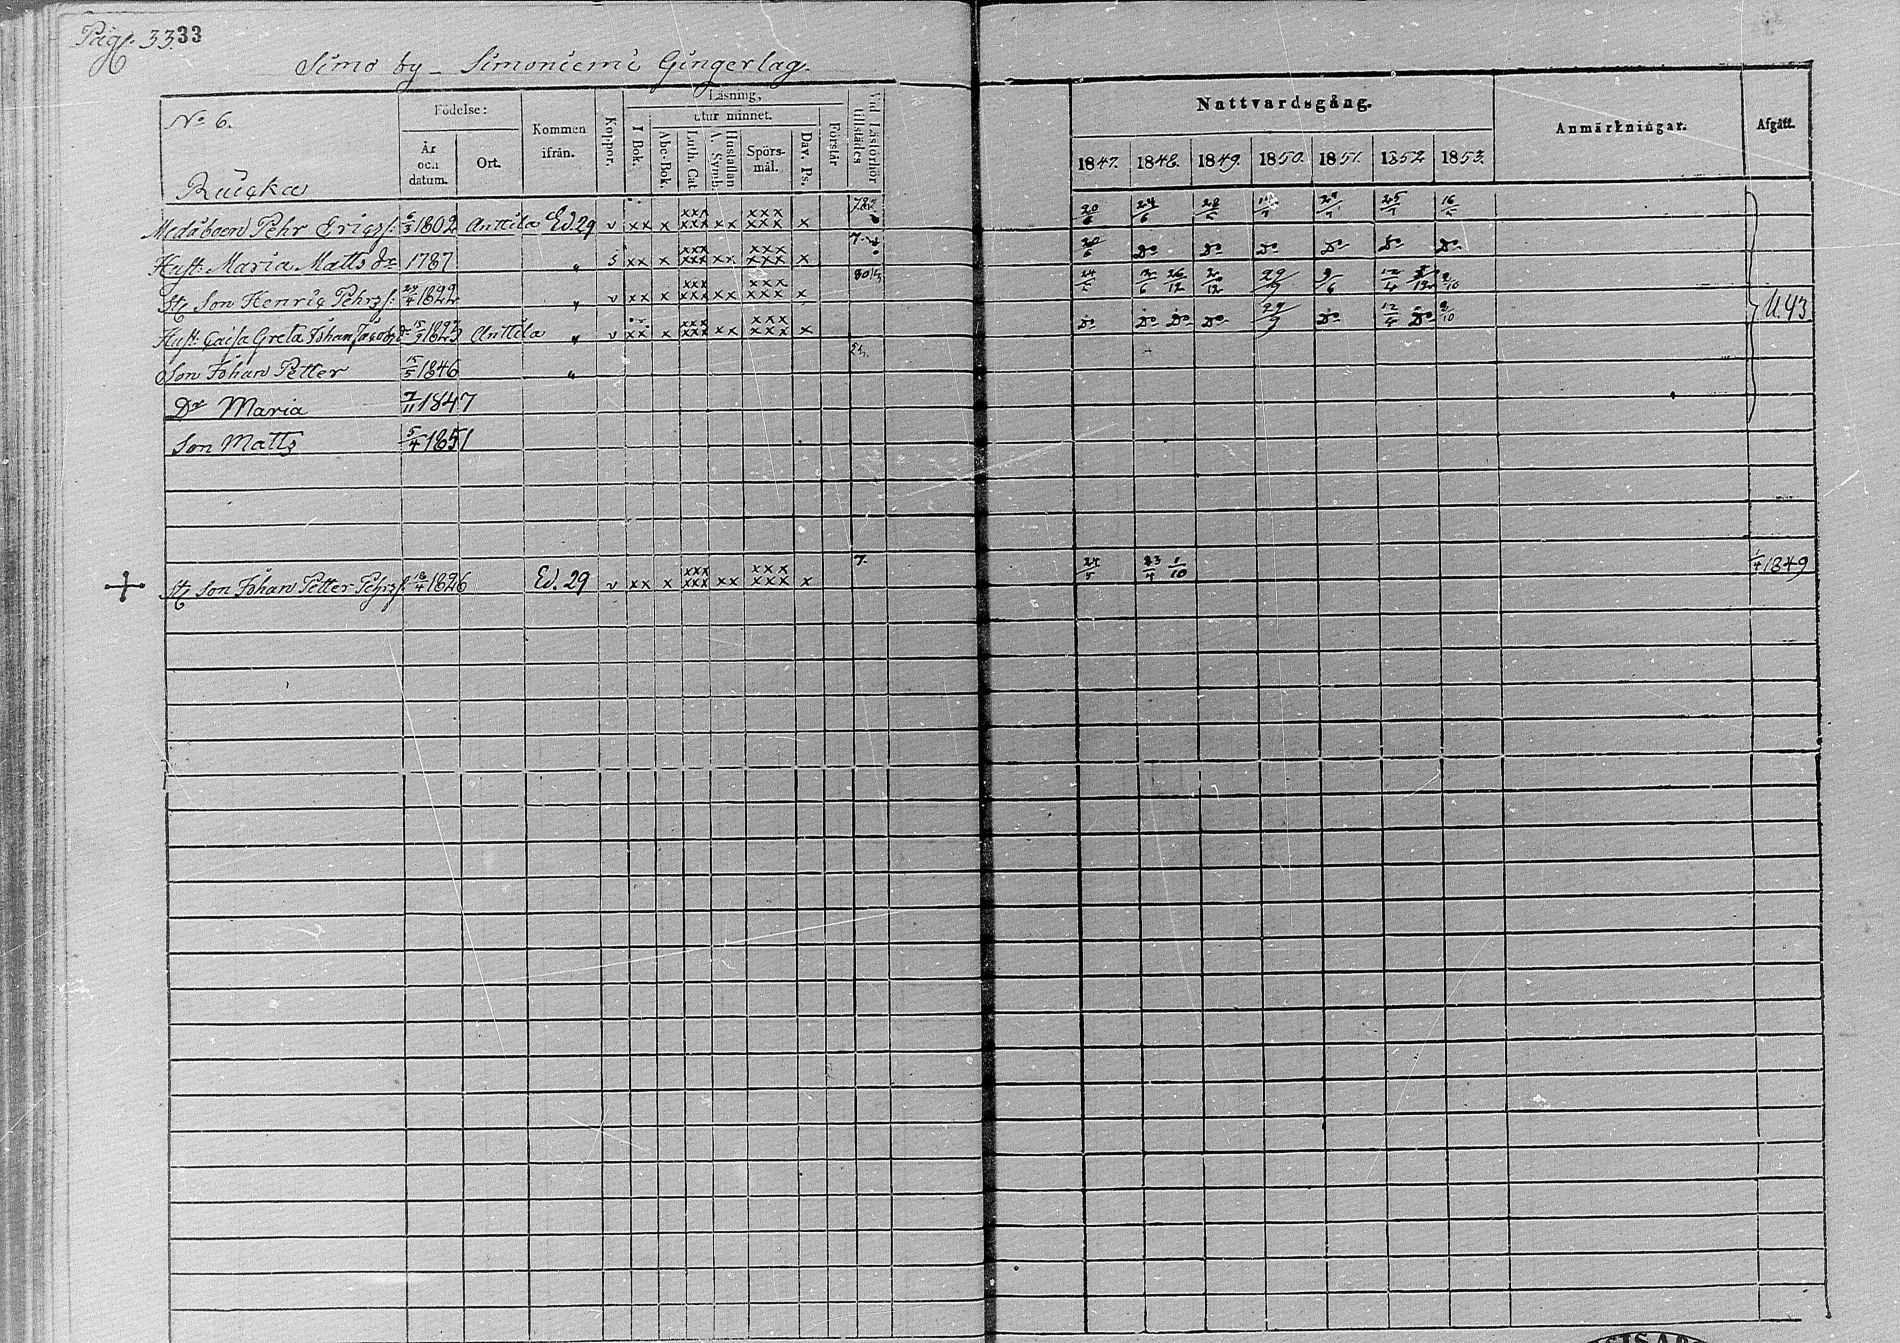 Pag. 33. 33
Simo by - Simoniemi Gingerlag.
No 6.
Födelse:
År och datum.
Ort.
Kommen ifrån.
Koppor.
Läsning,
I Bok.
utur minnet.
Abc-Bok.
Luth. Cat.
A. Symb.
Hustaflan
Spörs-mål.
Dav. Ps.
Förstår
Vid Läsförhör tillstädes
Nattvardsgång.
1847. 1848. 1849. 1850. 1851. 1852. 1853.
Anmärkningar.
Afgått.
Ruicka
Medåboen Pehr Ericss. 1802 Anttila Ed. 29 v xx x xxx xxx xx xxx xxx x 20/6 24/6
Hust: Maria Matts dr 1787 " 5 xx x xxx xxx xx xxx xxx x 20/6 Do Do Do Do Do Do
Son Henric Pehrss. 24/4 1822 " v xx x xxx xxx xx xxx xxx x 26/12 2/12 29/9 9/6
Hust: Caisa Greta Johan Jacobs dr 1823 Anttila " v xx x xxx xxx xx xxx xxx x Do Do Do Do 29/9 Do 12/4 Do 2/10
U. 43
Son Johan Petter 15/5 1846 "
Dr Maria 7/11 1847
Son Matts 5/4 1851
Son Johan Petter Pehrss. 18/4 1826 Ed. 29 v xx x xxx xxx xx xxx xxx x 7. 24/5 23/4 1/10 1/4 1849